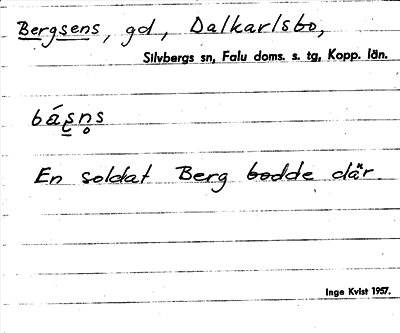 Bergsens, gd, Dalkarlsbo,
Silvbergs sn, Falu doms. s. tg, Kopp. län.
básn̥s
En soldat Berg bodde där.
Inge Kvist 1957.